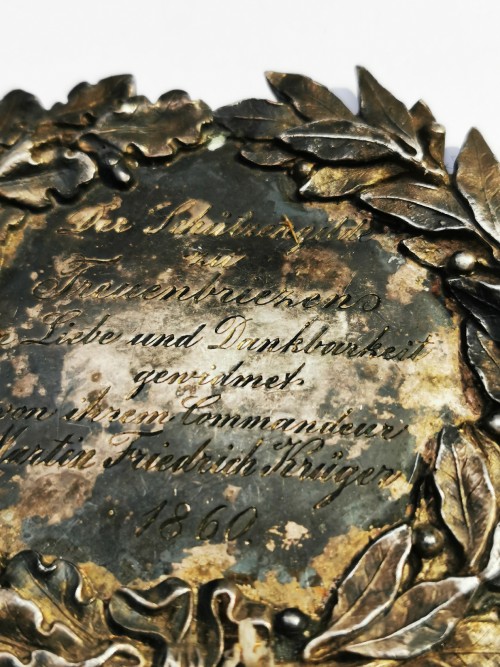 Der Schützengilde
zu
Treuenbriezens
Liebe und Dankbarkeit
gewidmet
von ihrem Commandeur
Martin Friedrich Krüger
1860.